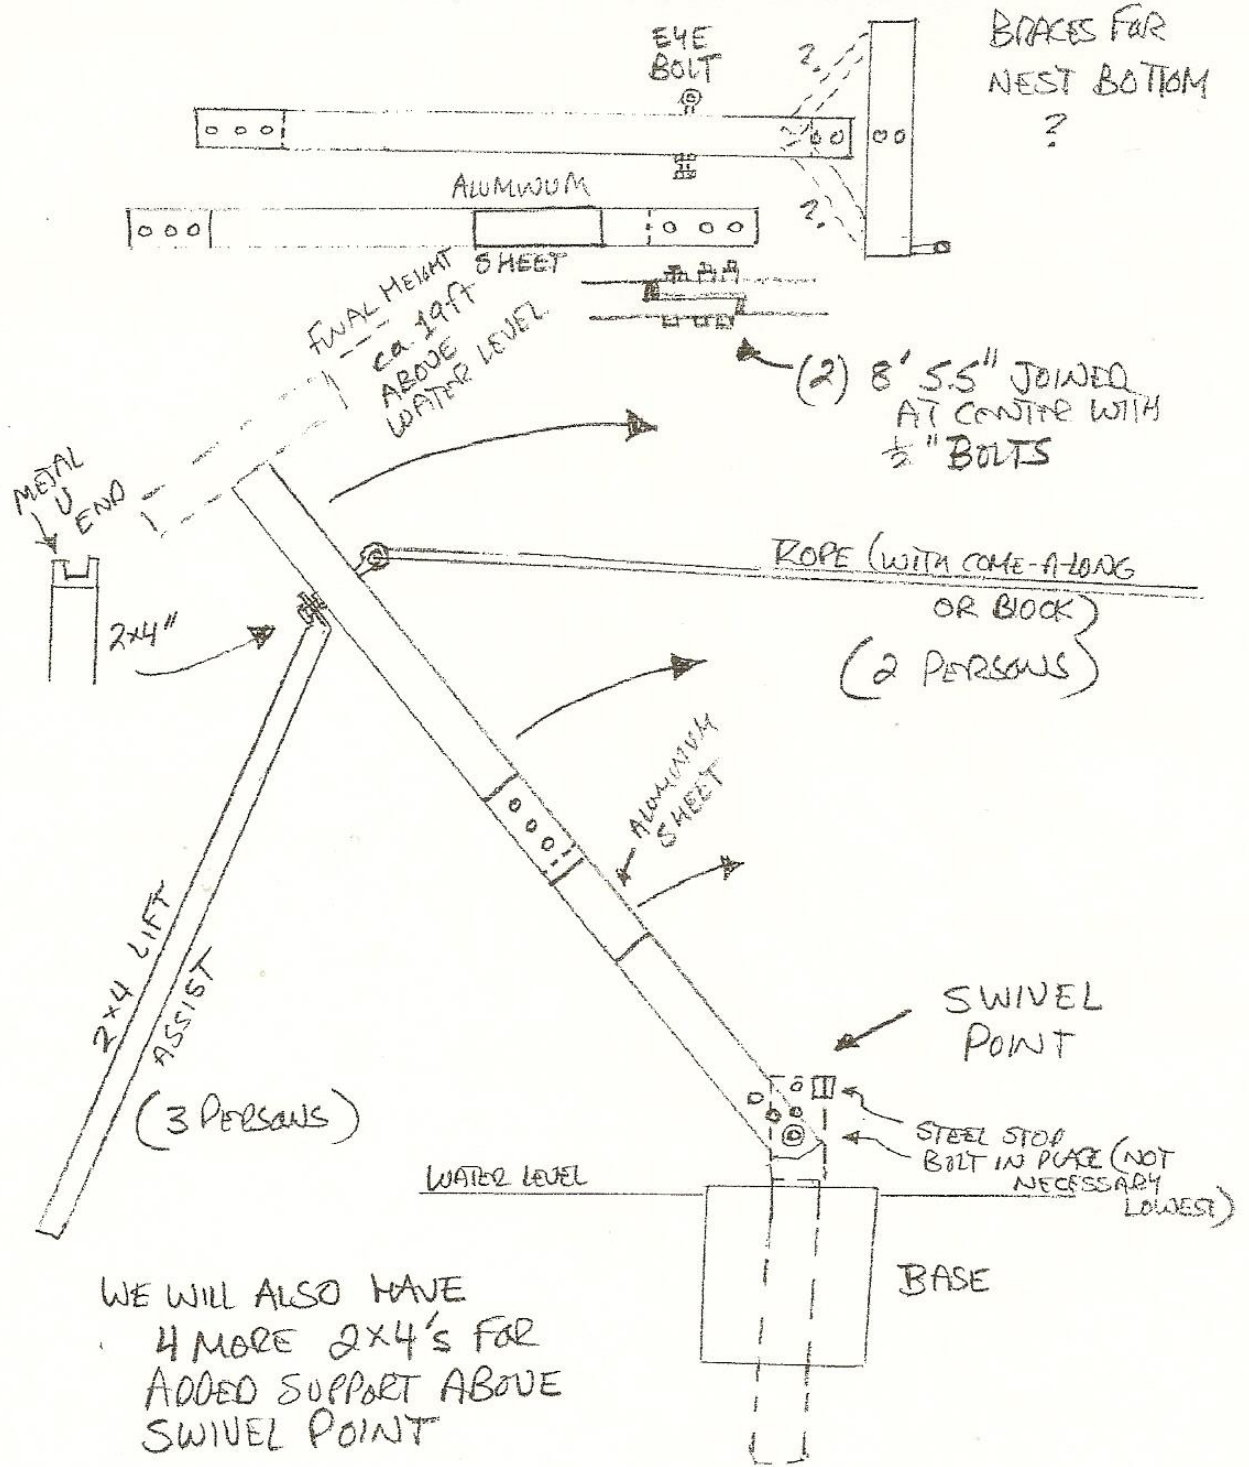 EYE
BOLT
BRACES FOR
NEST BOTTOM
?
?.
?.
ALUMINUM
SHEET
FINAL HEIGHT
ca. 19ft
ABOVE
WATER LEVEL
(2) 8' 5.5" JOINED
AT CENTRE WITH
½" BOLTS
METAL
U
END
2x4"
ROPE (WITH COME-A-LONG
OR BLOCK)
(2 PERSONS)
ALUMINUM
SHEET
2x4 LIFT
ASSIST
(3 PERSONS)
SWIVEL
POINT
STEEL STOP
BOLT IN PLACE (NOT
NECESSARY
LOWEST)
WATER LEVEL
BASE
WE WILL ALSO HAVE
4 MORE 2x4's FOR
ADDED SUPPORT ABOVE
SWIVEL POINT